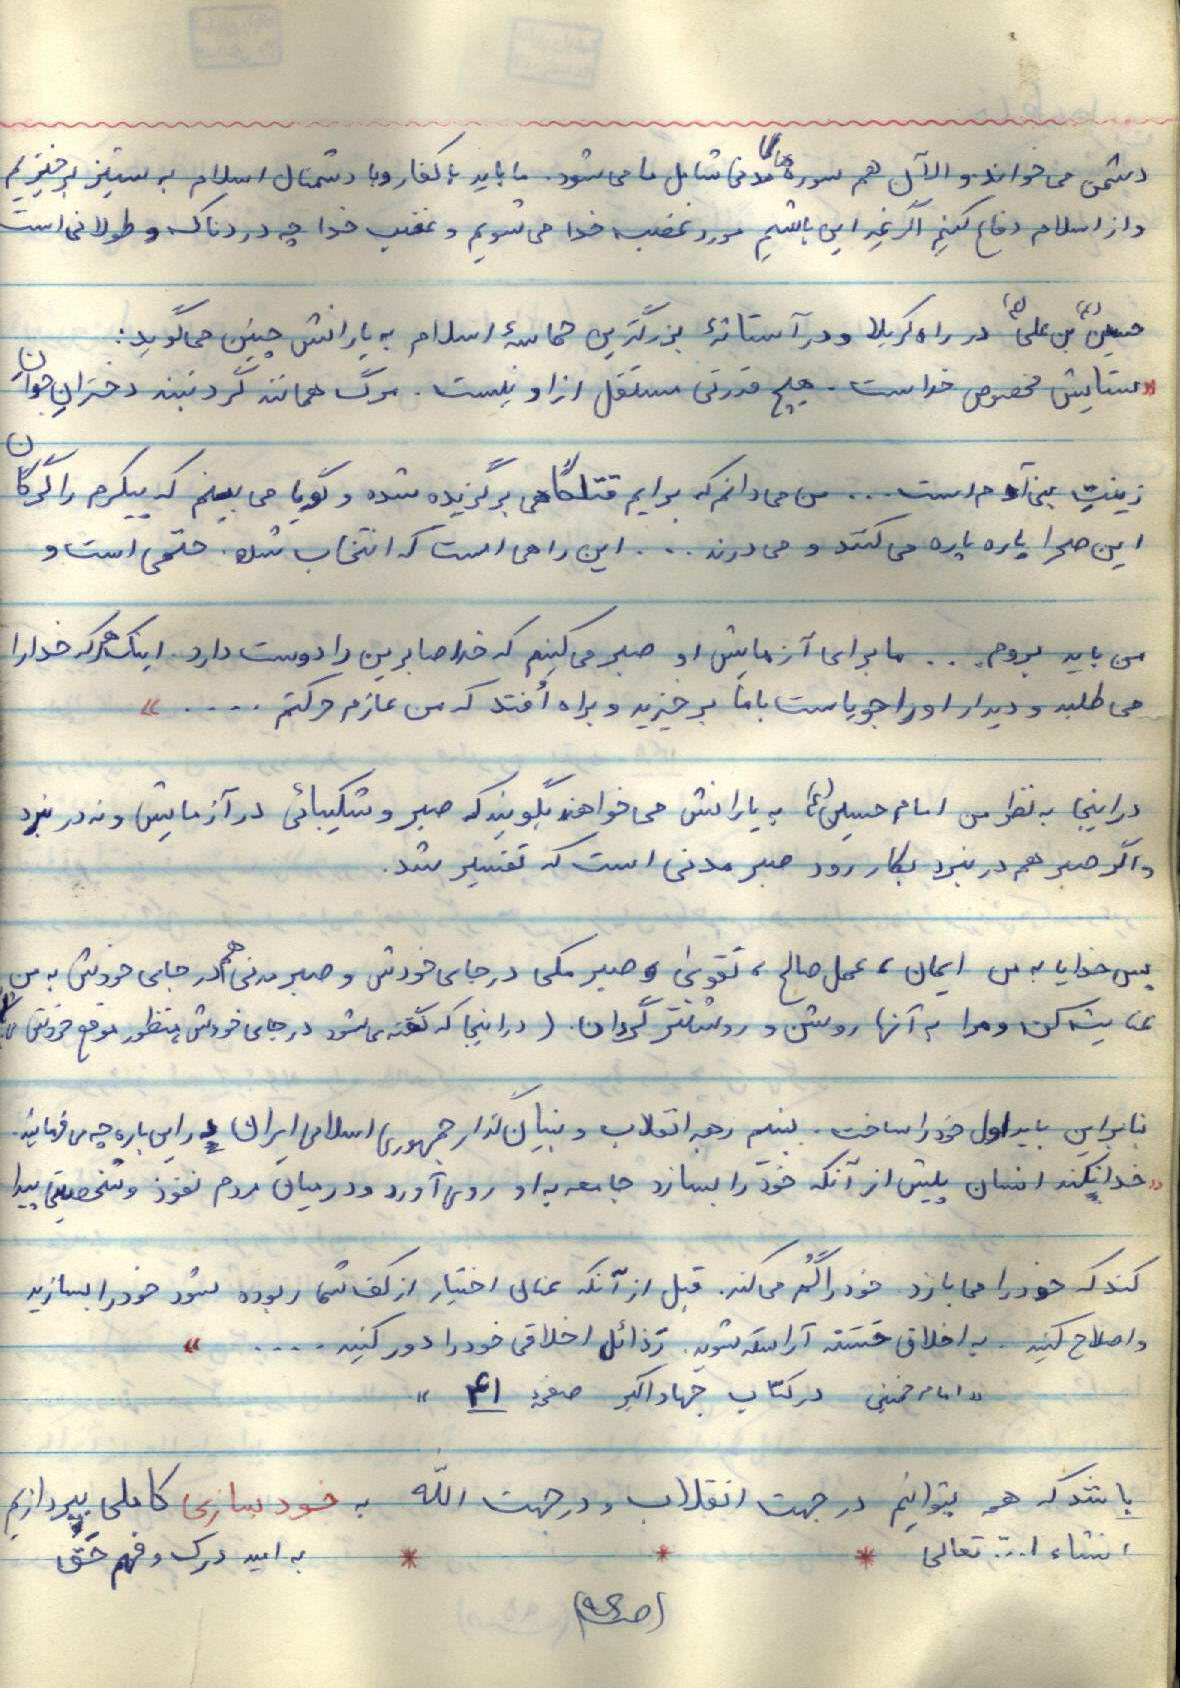 دشمن می‌خواند و الآن هم سوره‌های مدنی شامل ما می‌شود. ما باید با کفار و با دشمنان اسلام به ستیز برخیزیم
و از اسلام دفاع کنیم اگر غیر این باشیم مورد غضب خدا می‌شویم و غضب خدا چه دردناک و طولانی است
حسین(ع) بن علی(ع) در راه کربلا و در آستانهٔ بزرگترین حماسهٔ اسلام به یارانش چنین می‌گوید:
«ستایش مخصوص خداست. هیچ قدرتی مستقل از او نیست. مرگ همانند گردنبند دختران جوان
زینت بنی‌آدم است... من می‌دانم که برایم قتلگاهی برگزیده شده و گویا می‌بینم که پیکرم را گرگان
این صحرا پاره پاره می‌کنند و می‌درند ... این راهی است که انتخاب شده. حتمی است و
من باید بروم ... ما برای آزمایش او صبر می‌کنیم که خدا صابرین را دوست دارد. اینک هرکه خدا را
می‌طلبد و دیدار او را جویاست با ما برخیزید و براه اُفتد که من عازم حرکتم ....»
در اینجا به نظر من امام حسین(ع) به یارانش می‌خواهند بگویند که صبر و شکیبائی در آزمایش و نه در نبرد
و اگر صبر هم در نبرد بکار رود صبر مدنی است که تفسیر شد.
پس خدایا به من ایمان، عمل صالح، تقوی، و صبر مکی در جای خودش و صبر مدنی هم در جای خودش به من
عنایت کن و مرا به آنها روشن و روشنتر گردان. (در اینجا که گفته می‌شود در جای خودش منظور موقع خودش
بنابراین باید اول خود را ساخت. ببینیم رهبر انقلاب و بنیان‌گذار جمهوری اسلامی ایران در این باره چه می‌فرمایند.
«خدا نکند انسان پیش از آنکه خود را بسازد جامعه به او روی آورد و در میان مردم نفوذ و شخصیتی پیدا
کند که خود را می‌بازد. خود را گم می‌کند. قبل از آنکه عنان اختیار از کف شما ربوده شود خود را بسازید
و اصلاح کنید. به اخلاق حَسَنه آراسته شوید. رَذائل اخلاقی خود را دور کنید ....»
«امام خمینی در کتاب جهاد اکبر صفحهٔ ۴۱»
باشد که همه بتوانیم در جهت انقلاب و در جهت اللّه به خودسازی کاملی بپردازیم
انشاء ا... تعالی * * * به امید درک و فهم حَقّ